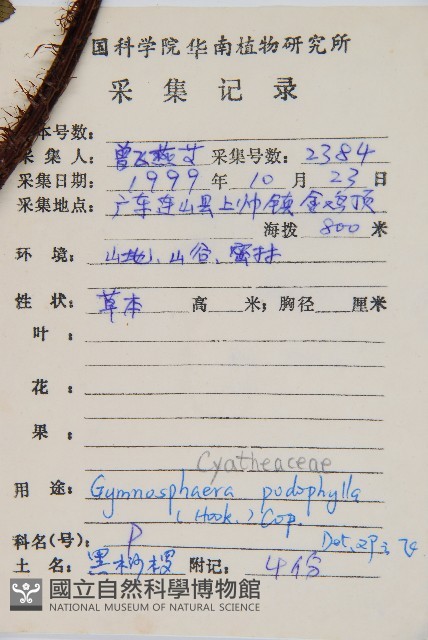 国科学院华南植物研究所
采集记录
本号数:
采集人: 曾飞燕艾 采集号数: 2384
采集日期: 1999 年 10 月 23 日
采集地点: 广东连山县上帅镇金鸡顶
海拨 800 米
环境: 山地、山谷、密林
性状: 草本 高 米; 胸径 厘米
叶:
花:
果:
Cyatheaceae
用途: Gymnosphaera podophylla
(Hook.) Cop.
科名(号): P Det.
土名: 黑桫椤 附记: 4份
國立自然科學博物館
NATIONAL MUSEUM OF NATURAL SCIENCE